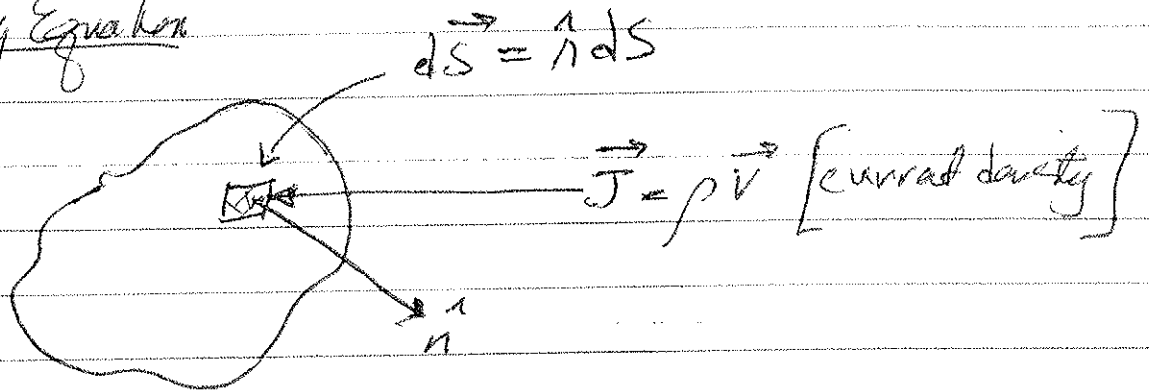 y Equation
dS⃗ = n̂ dS
J⃗ = ρ v⃗ [current density]
n̂